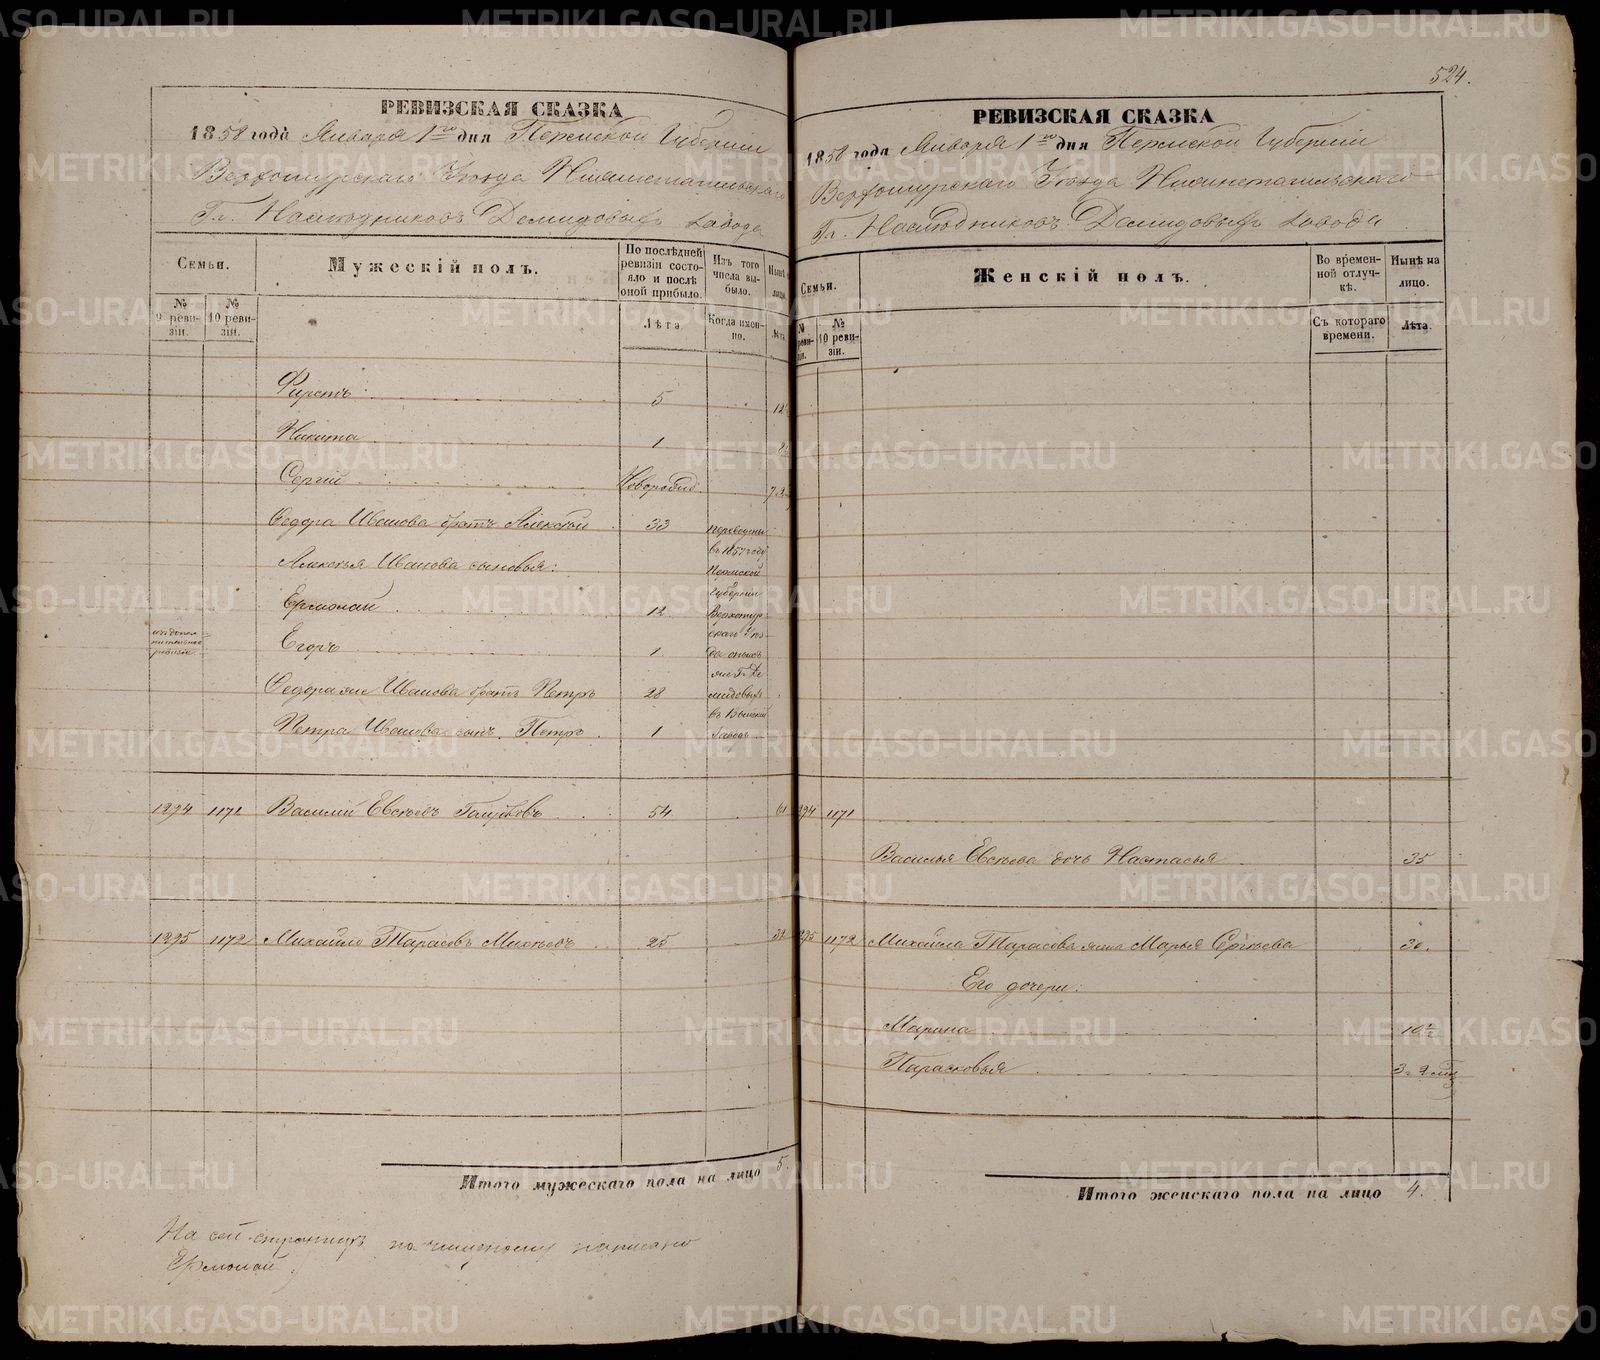 524.
РЕВИЗСКАЯ СКАЗКА
1858 года Января 1го дня Пермской Губернии
Верхотурскаго Уѣзда Нижнетагильскаго
Гг. Наслѣдниковъ Демидовыхъ Завода
Семьи.
Мужескій полъ.
По послѣдней ревизіи состояло и послѣ оной прибыло.
Изъ того числа выбыло.
Нынѣ на лицо.
№ 9 ревизіи.
№ 10 ревизіи.
Лѣта.
Когда именно.
Лѣта
Фирстъ 5 12
Никита 1
Сергій Новорожд. 7
Федора Иванова братъ Алексѣй 33
переведены
въ 1857 году
Пермской
Губерніи
Верхотур-
скаго Уѣз-
да
Гг. Де-
мидовыхъ
въ Выйскій
Заводъ
Алексѣя Иванова сыновья:
Ермолай 12
Егоръ 1
Федора же Иванова братъ Петръ 28
Петра Иванова сынъ Петръ 1
1294 1171 Василий Евсѣевъ 54 61
1295 1172 Михайло Тарасовъ 25 32
Итого мужескаго пола на лицо 5.
На сей страницѣ по написано
Ермолай.
РЕВИЗСКАЯ СКАЗКА
1858 года Января 1го дня Пермской Губерніи
Верхотурскаго Уѣзда Нижнетагильскаго
Гг. Наслѣдниковъ Демидовыхъ Завода
Семьи.
Женскій полъ.
Во временной отлучкѣ.
Нынѣ на лицо.
№ 10 ревизіи.
Съ котораго времени.
Лѣта.
1171
Василья Евсѣева дочь Настасья 35
1172 Михайла Тарасова жена Марья Сергѣева 30.
Его дочери:
Марина 10½
Парасковья
Итого женскаго пола на лицо 4.
METRIKI.GASO-URAL.RU